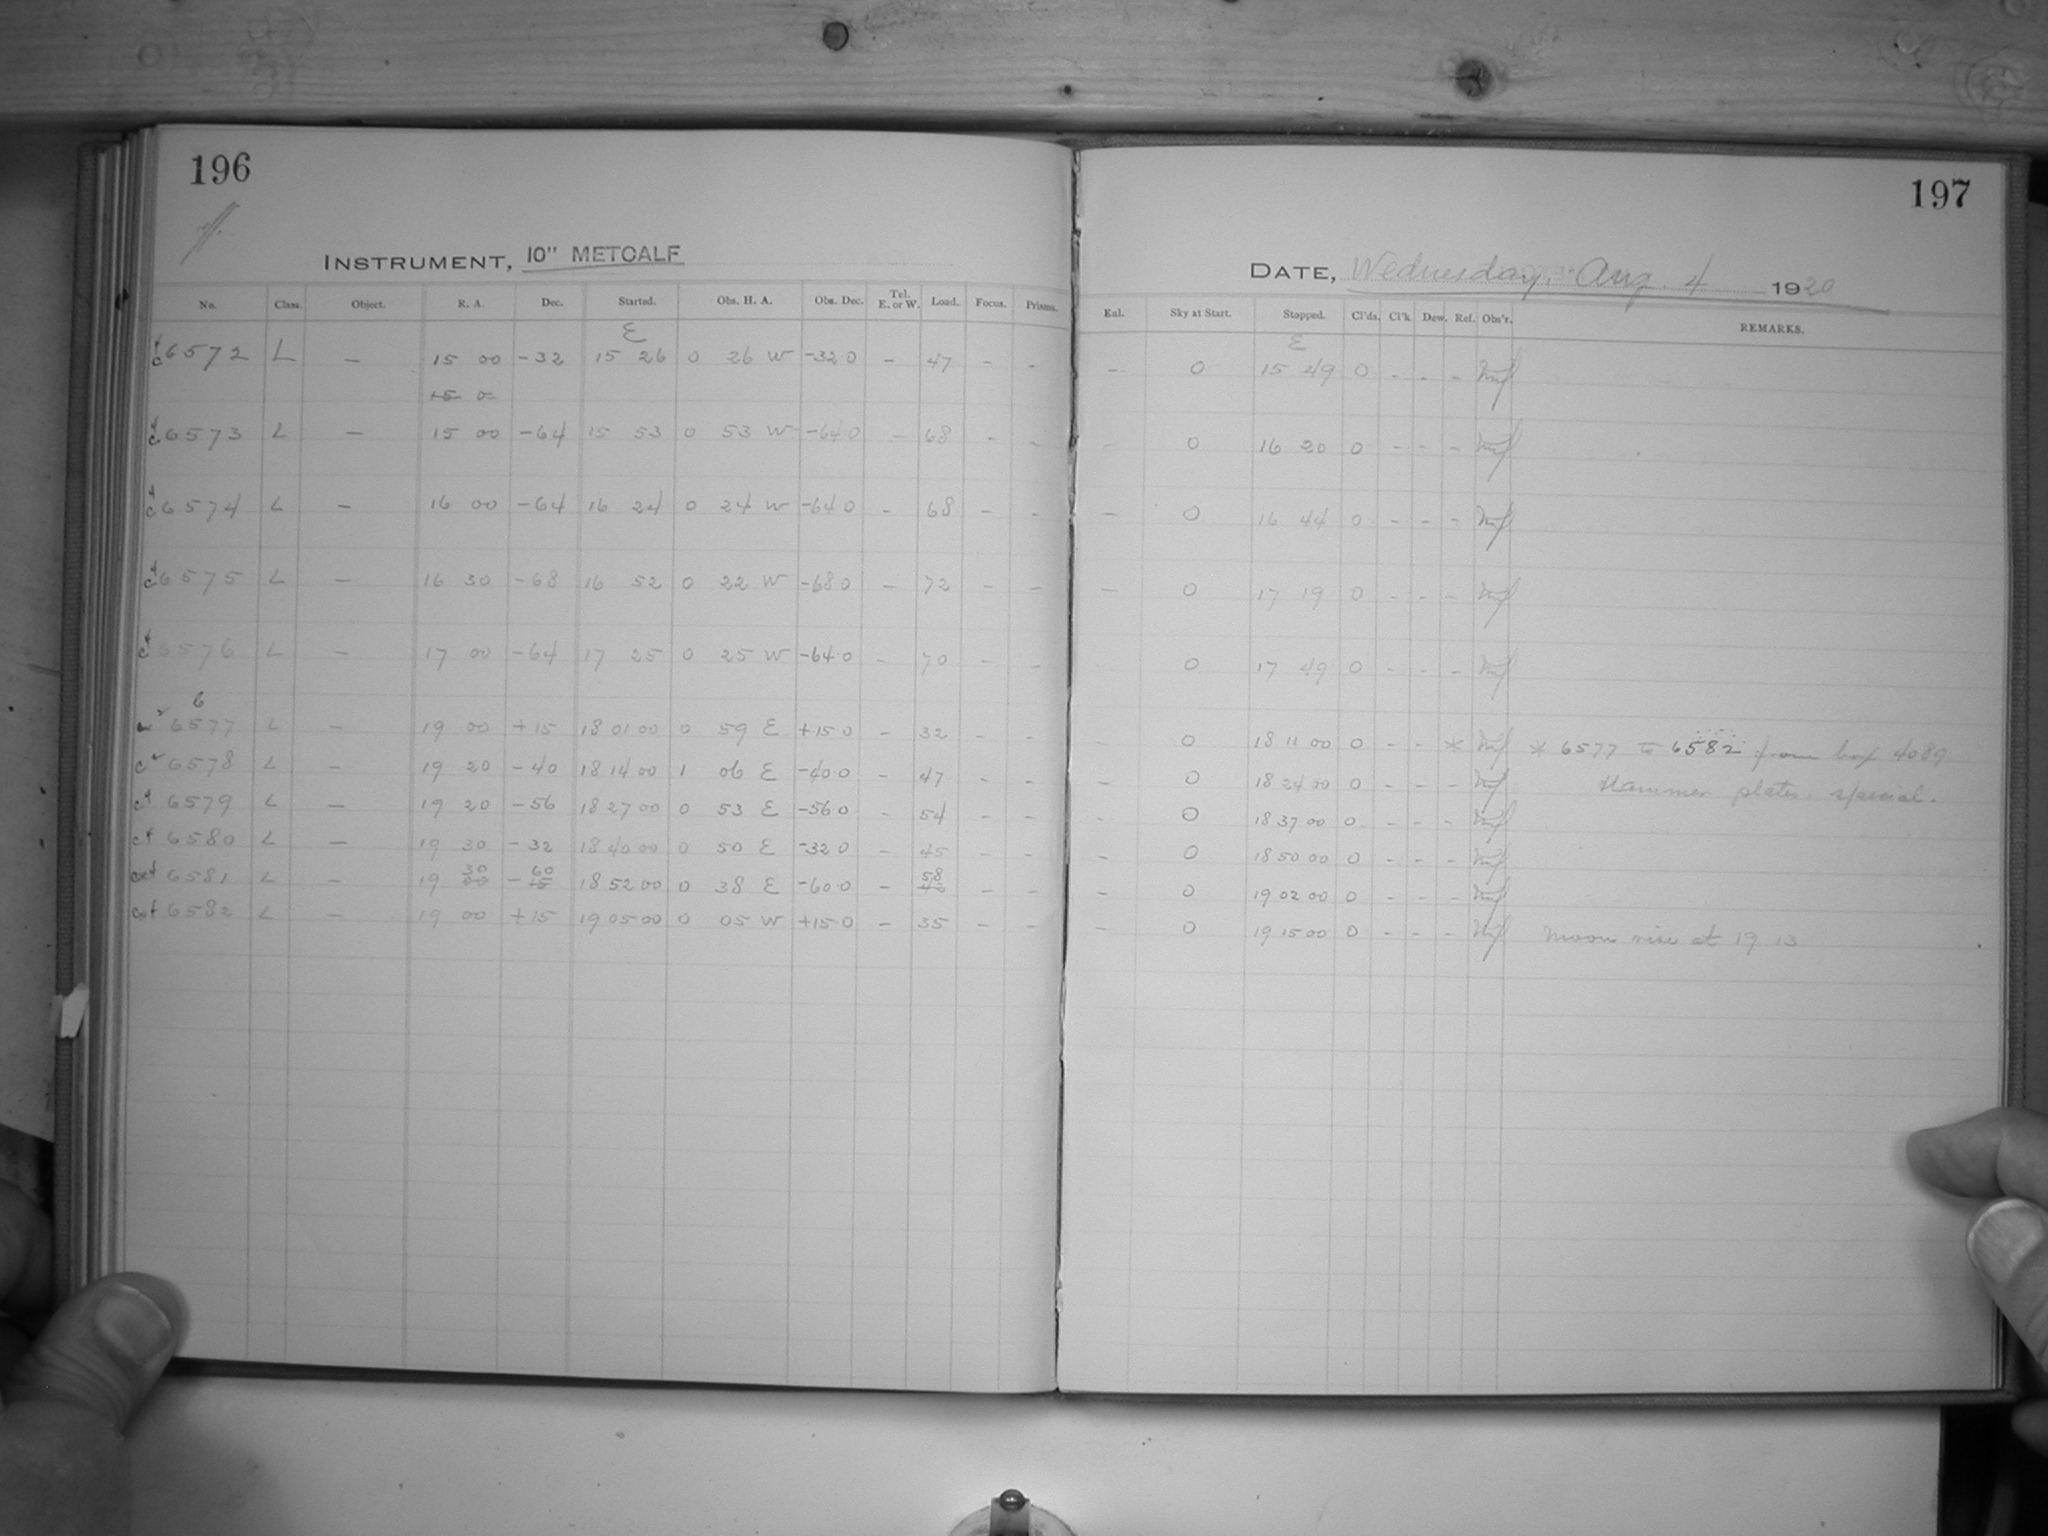 196
INSTRUMENT, 10" METCALF
No. Class. Object. R. A. Dec. Started. Obs. H. A. Obs. Dec. Tel. E. or W. Load. Focus. Prisms.
E
6572 L — 15 00 -32 15 26 0 26 W -32 0 - 47 - -
15 0
6573 L — 15 00 -64 15 53 0 53 W -64 0 - 68 - -
6574 L — 16 00 -64 16 24 0 24 W -64 0 - 68 - -
6575 L — 16 30 -68 16 52 0 22 W -68 0 - 72 - -
6576 L — 17 00 -64 17 25 0 25 W -64 0 - 70 - -
6
6577 L — 19 00 +15 18 01 00 0 59 E +15 0 - 32 - -
6578 L — 19 20 -40 18 14 00 1 06 E -40 0 - 47 - -
6579 L — 19 20 -56 18 27 00 0 53 E -56 0 - 54 - -
6580 L — 19 30 -32 18 40 00 0 50 E -32 0 - 45 - -
6581 L — 19 30 -60 18 52 00 0 38 E -60 0 - 58 - -
6582 L — 19 00 +15 19 05 00 0 05 W +15 0 - 35 - -
197
DATE, Wednesday, Aug. 4 1920
Eal. Sky at Start. Stopped. Cl'ds. Cl'k Dew. Ref. Obs'r. REMARKS.
E
- 0 15 49 0 - - -
- 0 16 20 0 - - -
- 0 16 44 0 - - -
- 0 17 19 0 - - -
0 17 49 0 - - -
- 0 18 11 00 0 - - * * 6577 to 6582 from box 4089
- 0 18 24 00 0 - - - Hammer plates. special.
- 0 18 37 00 0 - - -
- 0 18 50 00 0 - - -
- 0 19 02 00 0 - - -
- 0 19 15 00 0 - - - Moon rise at 19 13